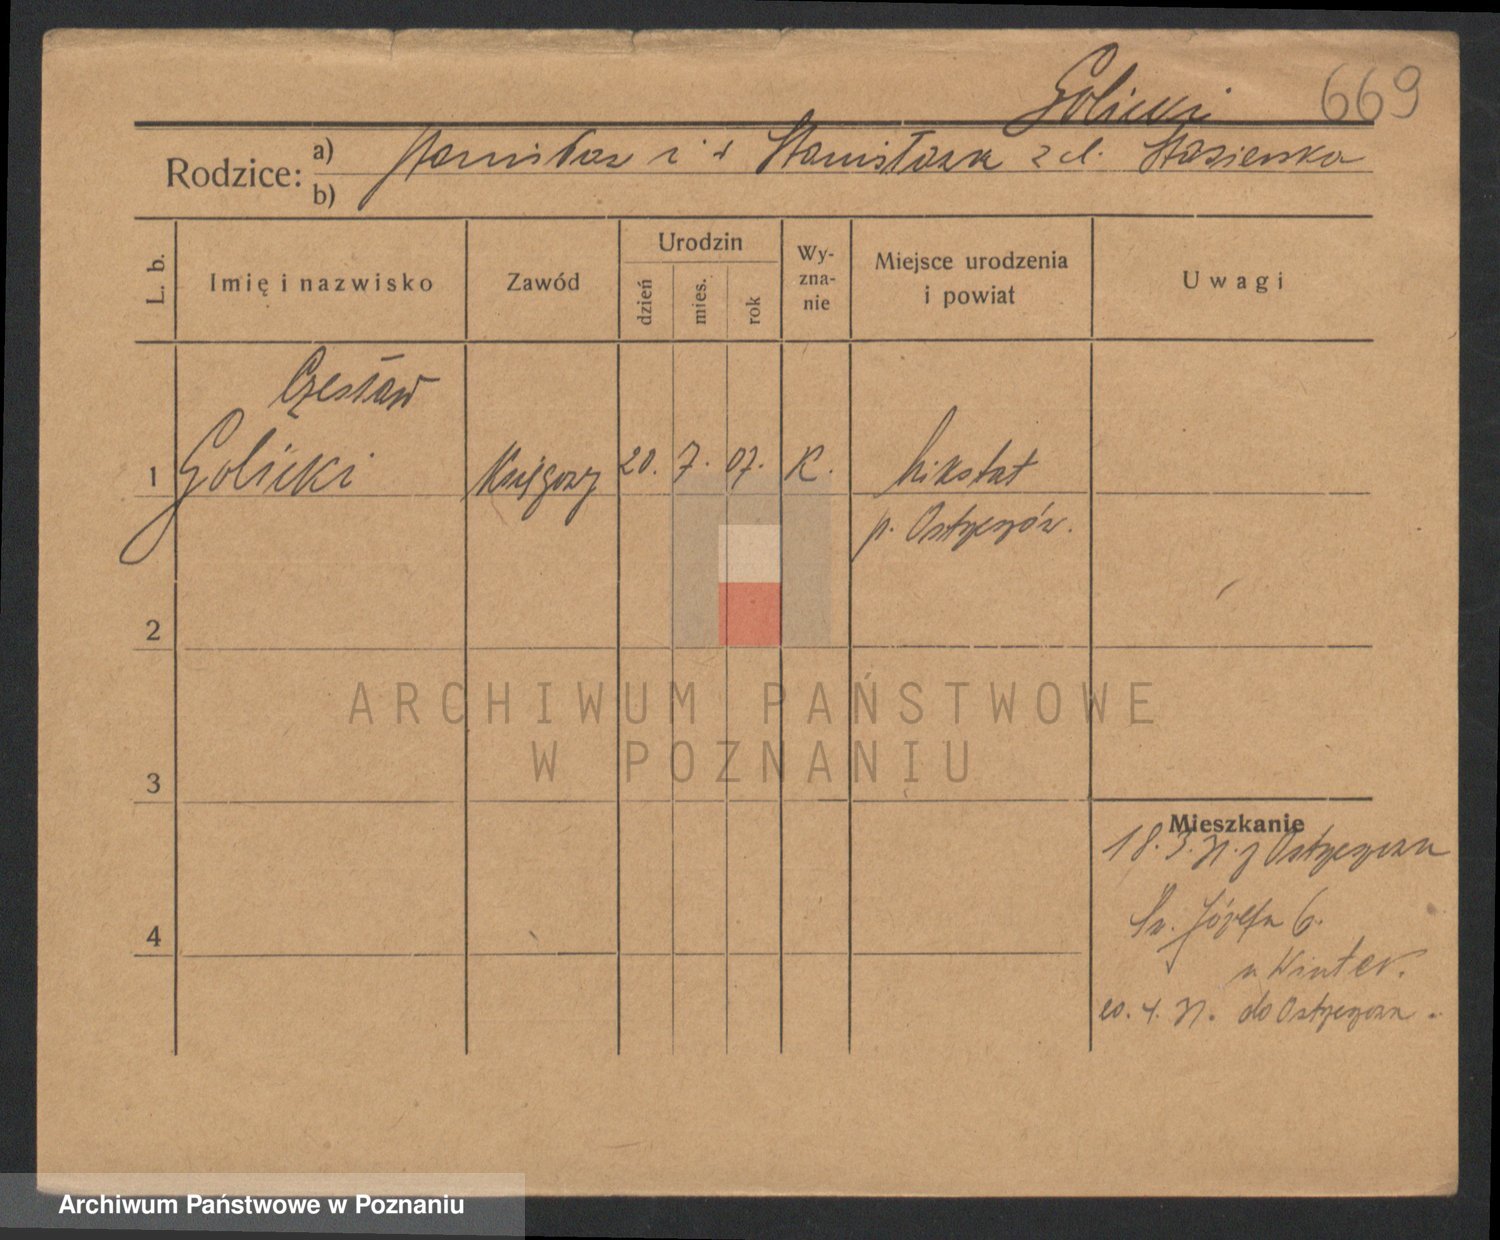 Golicki 669
Rodzice: a) Stanisław i Stanisława z d. Stasierska
b)
L. b.
Imię i nazwisko
Zawód
Urodzin
dzień
mies.
rok
Wy-
zna-
nie
Miejsce urodzenia
i powiat
Uwagi
Czesław
1 Golicki Księgowy 20. 7. 07. K. Mikstat
p. Ostrzeszów.
2
3
4
Mieszkanie
18. 3. z Ostrzeszowa
Św. Józefa 6.
u Winter.
do Ostrzeszowa.
ARCHIWUM PAŃSTWOWE
W POZNANIU
Archiwum Państwowe w Poznaniu